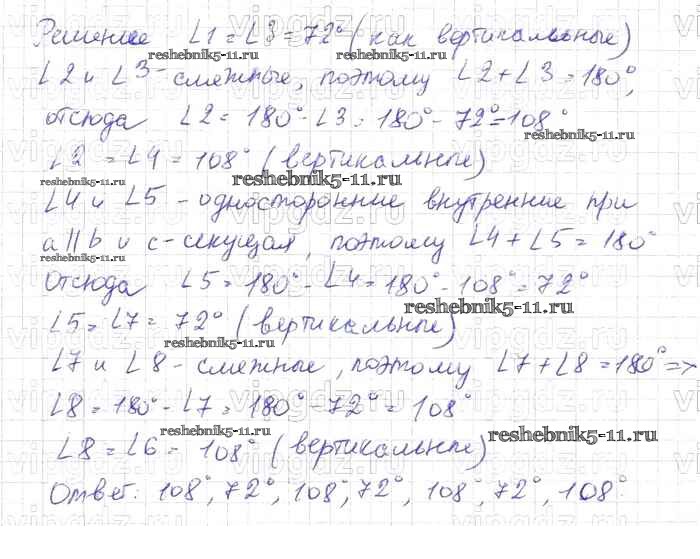 Решение ∠1 = ∠3 = 72° (как вертикальные)
reshebnik5-11.ru reshebnik5-11.ru
∠2 и ∠3 - смежные, поэтому ∠2 + ∠3 = 180°,
отсюда ∠2 = 180° - ∠3 = 180° - 72° = 108°
reshebnik5-11.ru
∠2 = ∠4 = 108° (вертикальные)
reshebnik5-11.ru reshebnik5-11.ru
∠4 и ∠5 - односторонние внутренние при
vipgdz.ru vipgdz.ru
a || b и c - секущая, поэтому ∠4 + ∠5 = 180°
reshebnik5-11.ru
Отсюда ∠5 = 180° - ∠4 = 180° - 108° = 72°
reshebnik5-11.ru
∠5 = ∠7 = 72° (вертикальные)
reshebnik5-11.ru
∠7 и ∠8 - смежные, поэтому ∠7 + ∠8 = 180° =>
∠8 = 180° - ∠7 = 180° - 72° = 108°
reshebnik5-11.ru reshebnik5-11.ru
∠8 = ∠6 = 108° (вертикальные)
Ответ: 108°, 72°, 108°, 72°, 108°, 72°, 108°